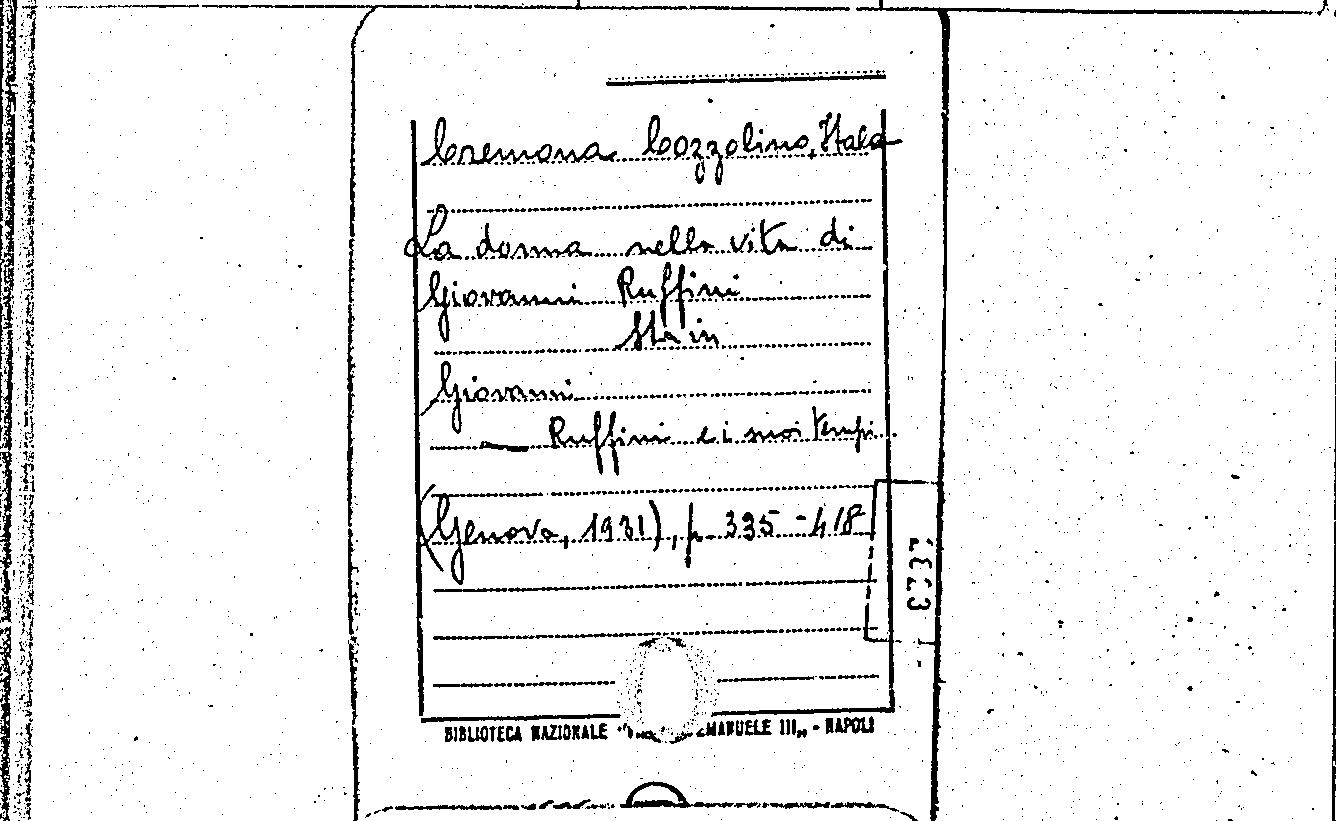 Cremona Cozzolino, Itala
La donna nella vita di
Giovanni Ruffini
Sta in
Giovanni
— Ruffini e i suoi tempi
(Genova, 1931), p. 335-418
BIBLIOTECA NAZIONALE EMANUELE III„ - NAPOLI